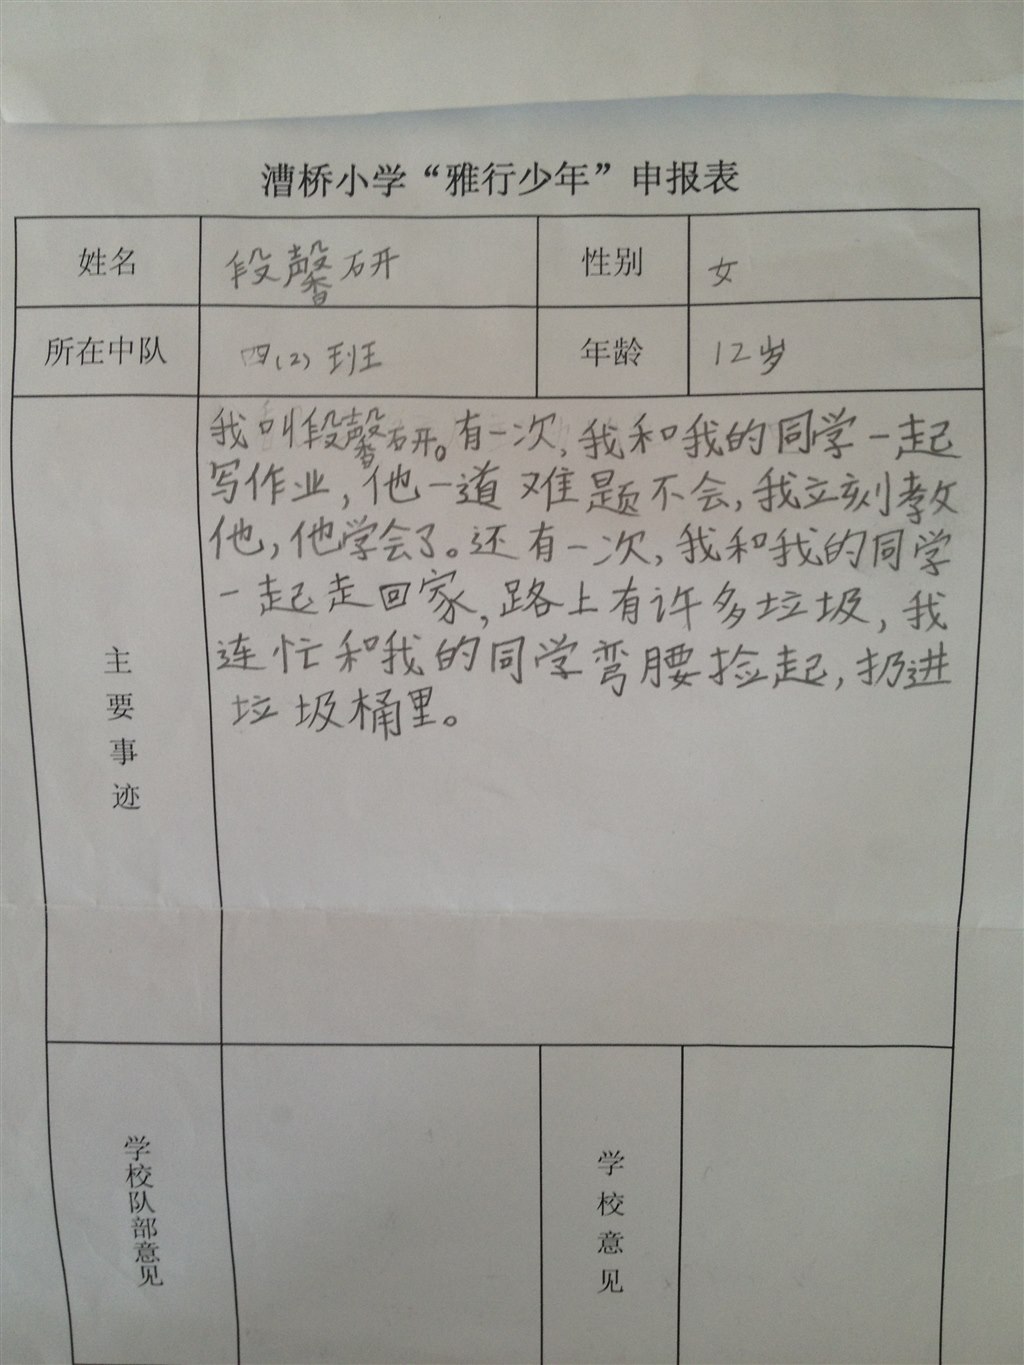 漕桥小学“雅行少年”申报表
姓名 段馨研 性别 女
所在中队 四(2)班 年龄 12岁
主要事迹
我叫段馨研。有一次,我和我的同学一起
写作业,他一道难题不会,我立刻教
他,他学会了。还有一次,我和我的同学
一起走回家,路上有许多垃圾,我
连忙和我的同学弯腰捡起,扔进
垃圾桶里。
学校队部意见 学校意见